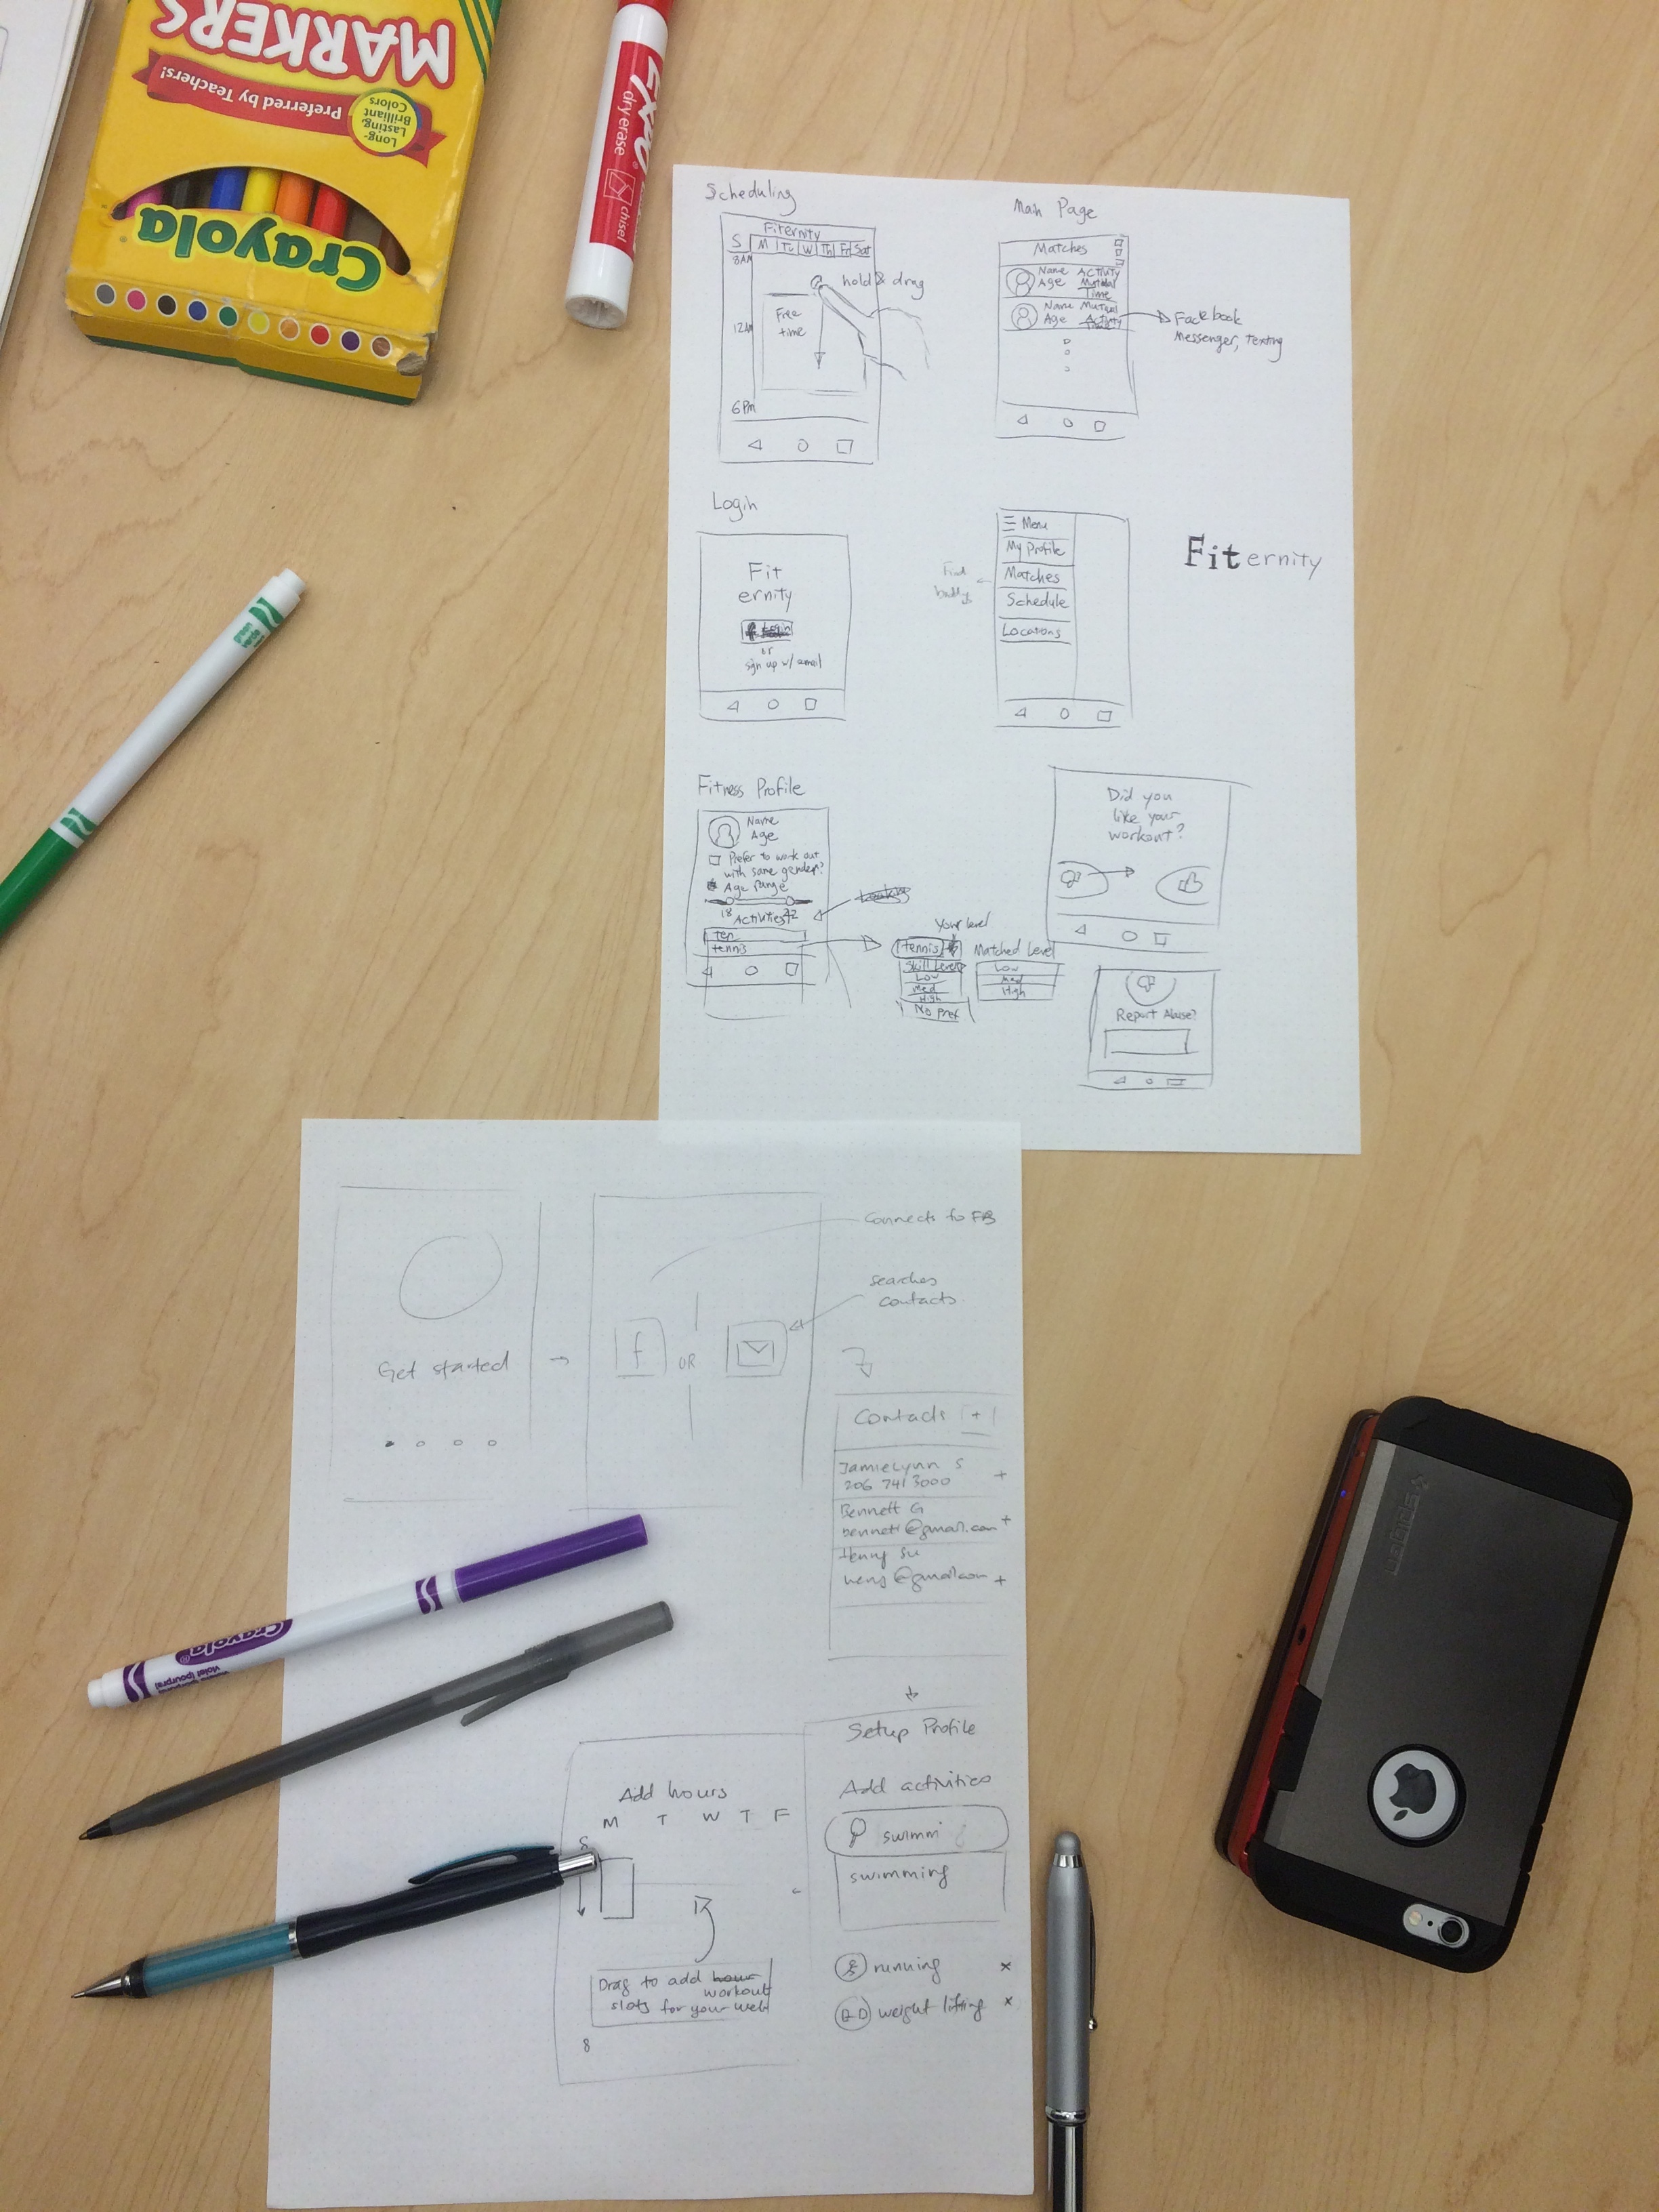 MARKERS
Preferred by Teachers!
Long-
Lasting,
Brilliant
Colors
Crayola
EXPO
dry erase
chisel
green
verde
Scheduling
Fiternity
S M Tu W Th Fr Sat
8AM
hold & drag
Free
time
12AM
6PM
Main Page
Matches
Name Activity
Age Mutual
Time
Name Mutual
Age Activity
Facebook
Messenger, Texting
Login
Fit
ernity
Login
or
sign up w/ email
Menu
My Profile
Matches
Schedule
Locations
Find
buddy
Fiternity
Fitness Profile
Name
Age
Prefer to work out
with same gender?
Age range
18 22
Activities
Ten
tennis
Your level
tennis
Skill level
Low
Med
High
No pref
Matched Level
Low
Med
High
Did you
like your
workout?
Report Abuse?
Get started
Connects to FB
searches
contacts
f OR
Contacts +
JamieLynn S
206 741 3000 +
Bennett G
bennett@gmail.com +
Henry Su
henry@gmail.com +
Setup Profile
Add activities
swimm
swimming
running x
weight lifting x
Add hours
M T W T F
8
Drag to add hour
workout
slots for your week
8
Crayola
violet (pourpra)
spigen